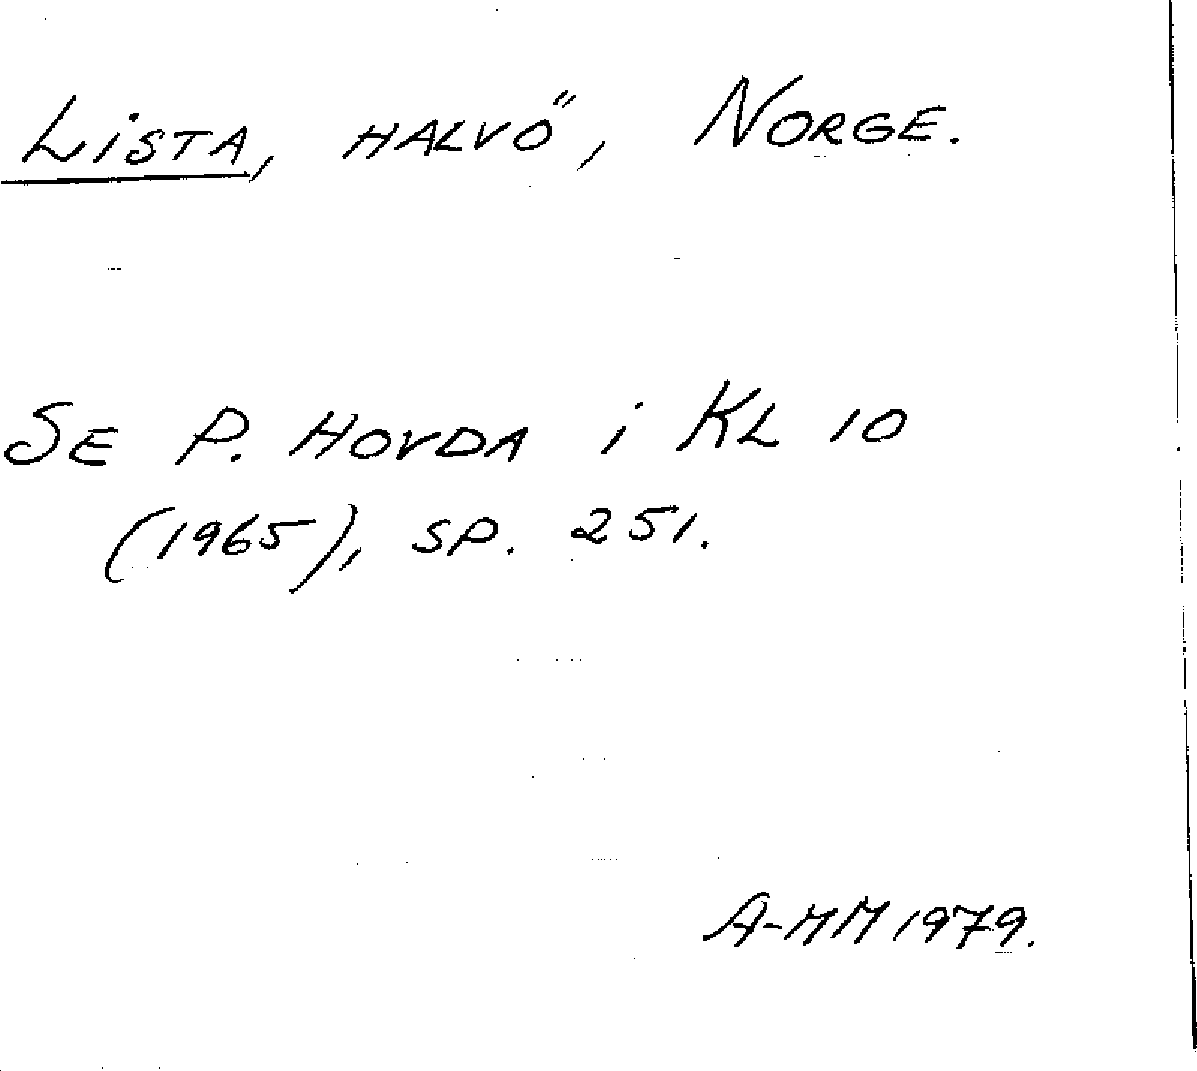 Lista, halvö, Norge.
Se P. Hovda i KL 10
(1965), sp. 251.
A-MM 1979.